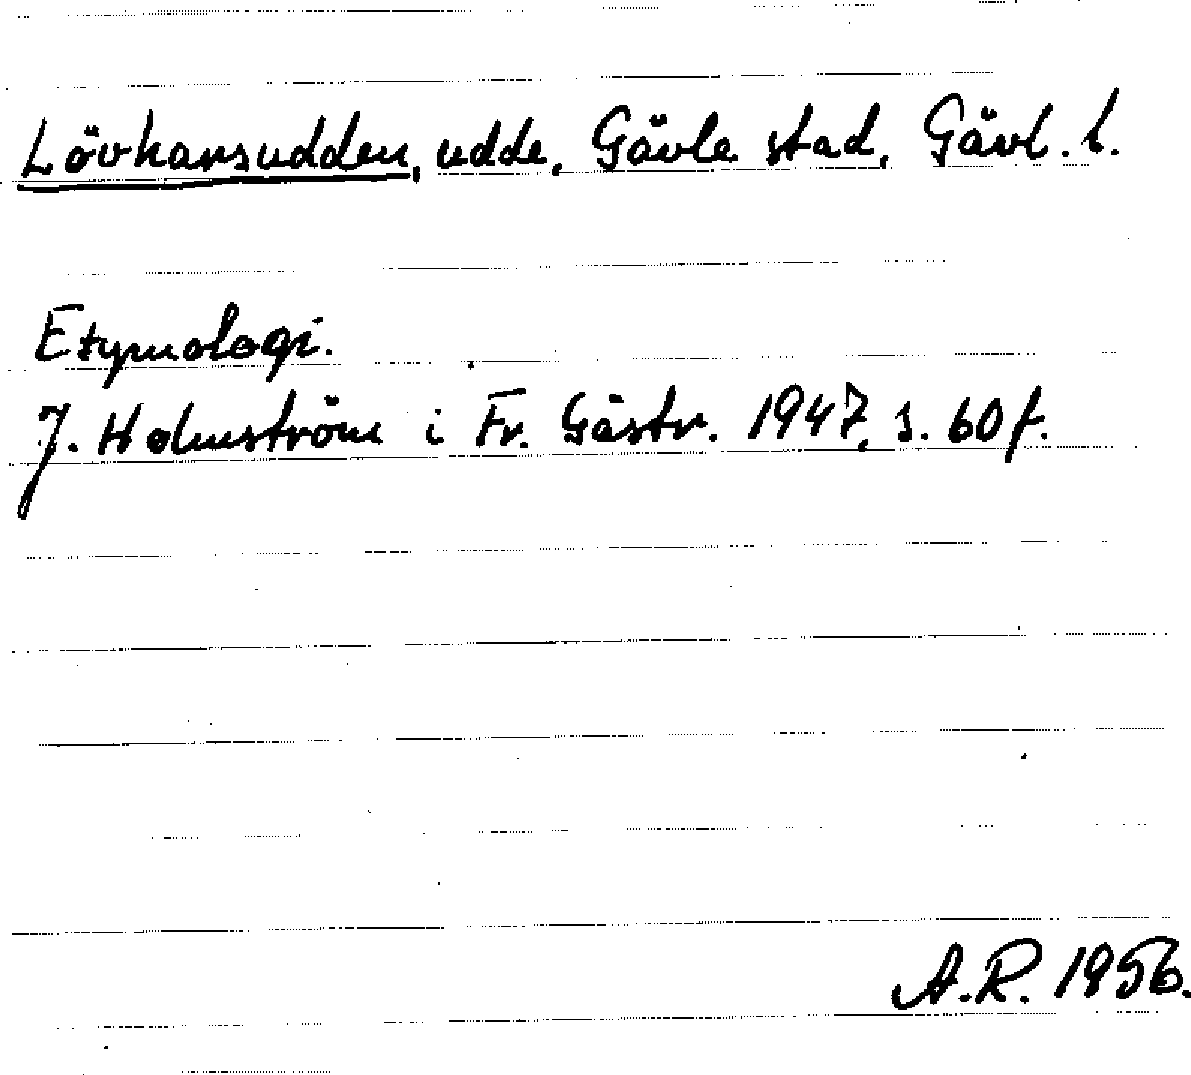 Lövharsudden, udde, Gävle stad, Gävl. l.
Etymologi.
J. Holmström i Fr. Gästr. 1947, s. 60 f.
A.R. 1956.